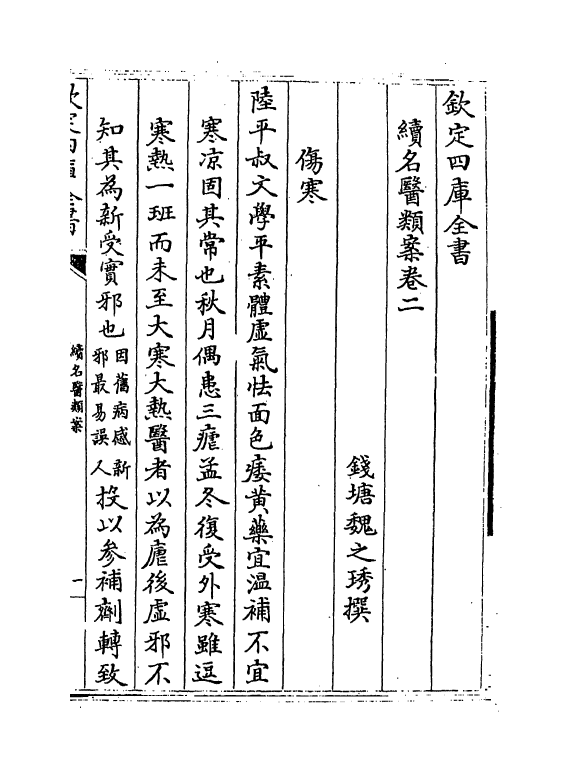 欽定四庫全書
續名醫類案卷二
錢塘魏之琇撰
傷寒
陸平叔文學平素體虛氣怯面色痿黃藥宜温補不宜
寒凉固其常也秋月偶患三瘧孟冬復受外寒雖逗
寒熱一班而未至大寒大熱醫者以為瘧後虛邪不
知其為新受實邪也因舊病感新邪最易誤人投以參補劑轉致
欽定四庫全書
續名醫類案
一